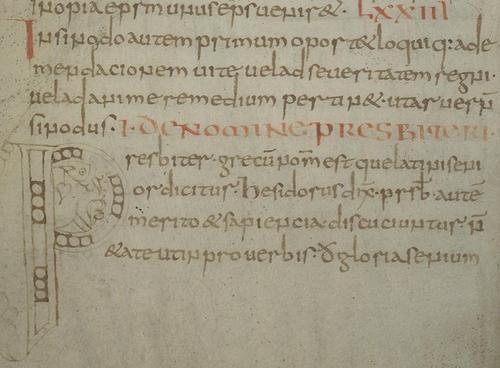 LXXIII
In sinodo autem primum oport& loqui q: ad e
mendacionem uite uel ad seueritatem regni·
uel ad anime remedium pertin&·
sinodus· I· DE NOMINE PRESBITERI
Presbiter· grecū nom̄ est que latini seni
or dicitur· hesidorus dix̄· prsb̄· autē
merito & sapiencia· discuciuntur· n̄
&ate ut in prouerbis· d̄ gloria senium